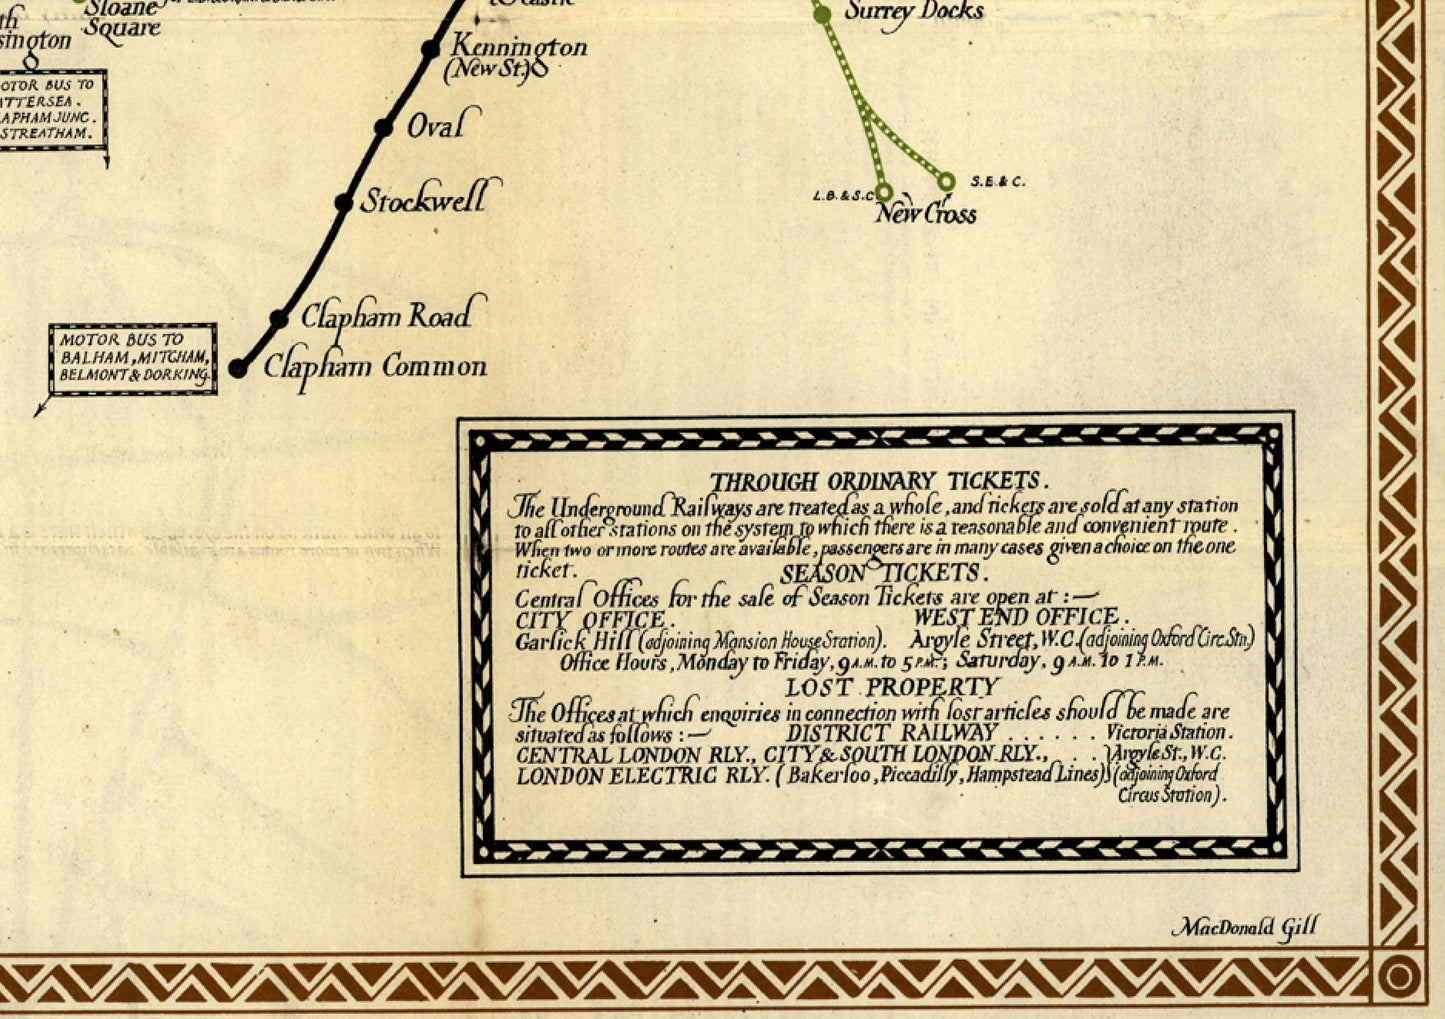 Sloane
Square
Surrey Docks
Kennington
(New St.)
MOTOR BUS TO
BATTERSEA.
CLAPHAM JUNC.
STREATHAM.
Oval
Stockwell
L.B.&S.C.
S.E.&C.
New Cross
Clapham Road
MOTOR BUS TO
BALHAM, MITCHAM,
BELMONT & DORKING.
Clapham Common
THROUGH ORDINARY TICKETS.
The Underground Railways are treated as a whole, and tickets are sold at any station
to all other stations on the system to which there is a reasonable and convenient route.
When two or more routes are available, passengers are in many cases given a choice on the one
ticket.
SEASON TICKETS.
Central Offices for the sale of Season Tickets are open at :—
CITY OFFICE. WEST END OFFICE.
Garlick Hill (adjoining Mansion House Station). Argyle Street, W.C. (adjoining Oxford Circ. Stn.)
Office Hours, Monday to Friday, 9 A.M. to 5 P.M.; Saturday, 9 A.M. to 1 P.M.
LOST PROPERTY
The Offices at which enquiries in connection with lost articles should be made are
situated as follows :— DISTRICT RAILWAY . . . . . . Victoria Station.
CENTRAL LONDON RLY., CITY & SOUTH LONDON RLY., . . } Argyle St., W.C.
LONDON ELECTRIC RLY. (Bakerloo, Piccadilly, Hampstead Lines) } (adjoining Oxford
Circus Station).
MacDonald Gill